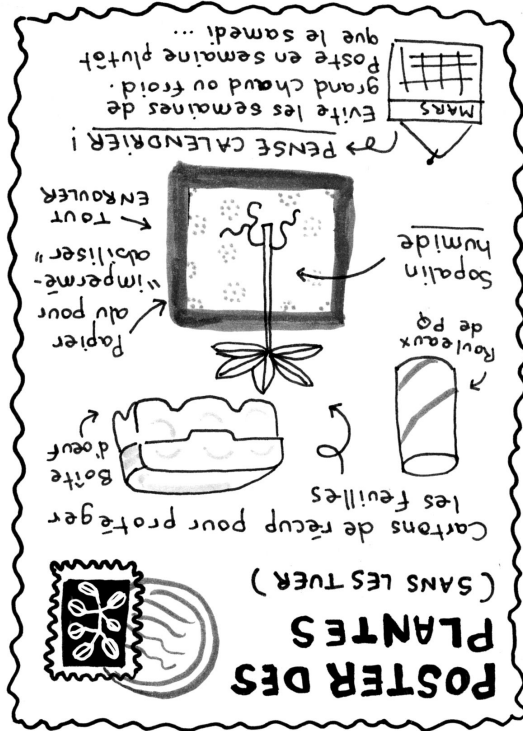 POSTER DES
PLANTES
(SANS LES TUER)
Cartons de récup pour protéger
les feuilles
Boîte
d'œuf
Rouleaux
de PQ
Papier
alu pour
"impermé-
abiliser"
Sopalin
humide
TOUT
ENROULER
PENSE CALENDRIER !
MARS
Evite les semaines de
grand chaud ou froid.
Poste en semaine plutôt
que le samedi ...